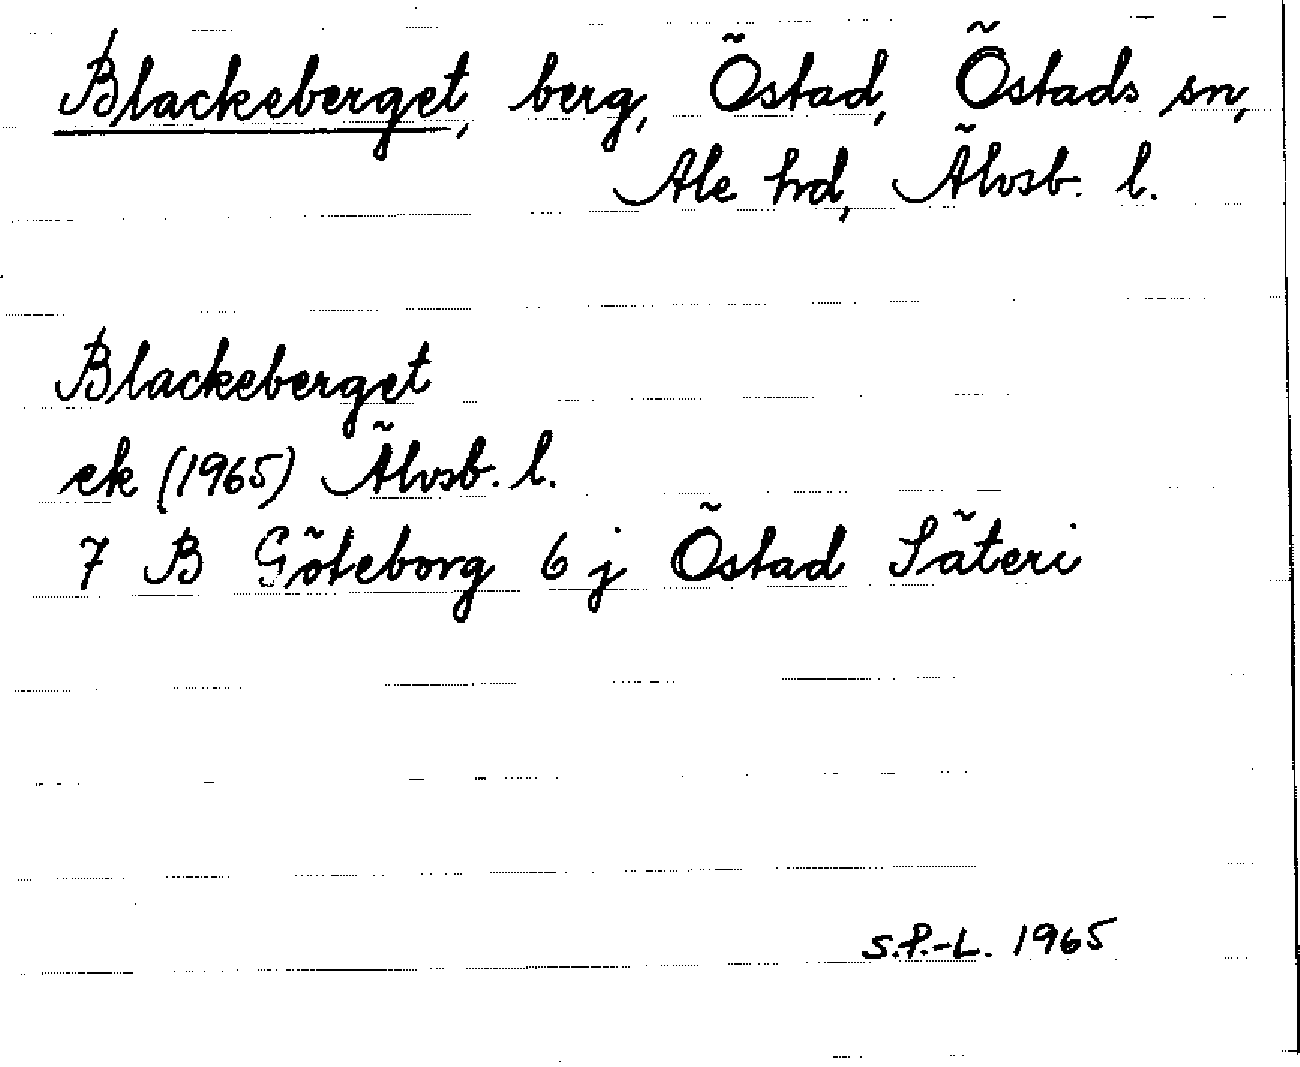 Blackeberget, berg, Östad, Östads sn,
Ale hd, Älvsb. l.
Blackeberget
ek (1965) Älvsb. l.
7 B Göteborg 6 j Östad Säteri
S.P.-L. 1965